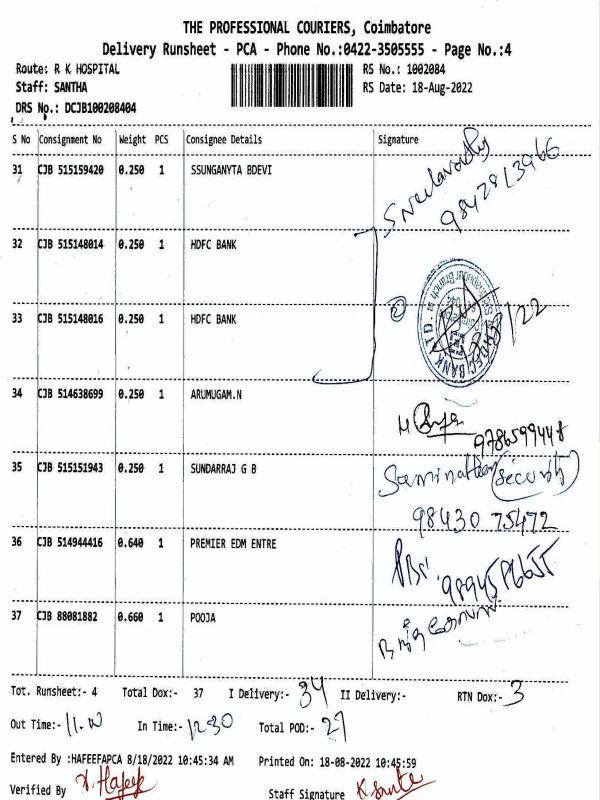 THE PROFESSIONAL COURIERS, Coimbatore
Delivery Runsheet - PCA - Phone No.:0422-3505555 - Page No.:4
Route: R K HOSPITAL RS No.: 1002084
Staff: SANTHA RS Date: 18-Aug-2022
DRS No.: DCJB100208404
S No Consignment No Weight PCS Consignee Details Signature
31 CJB 515159420 0.250 1 SSUNGANYTA BDEVI
9842813966
32 CJB 515148014 0.250 1 HDFC BANK
33 CJB 515148016 0.250 1 HDFC BANK
HDFC BANK LTD.
34 CJB 514638699 0.250 1 ARUMUGAM.N
9786599448
35 CJB 515151943 0.250 1 SUNDARRAJ G B
(security)
98430 75472
36 CJB 514944416 0.640 1 PREMIER EDM ENTRE
37 CJB 88081882 0.660 1 POOJA
Tot. Runsheet:- 4 Total Dox:- 37 I Delivery:- 34 II Delivery:- RTN Dox:- 3
Out Time:- 11.10 In Time:- 12.30 Total POD:- 27
Entered By :HAFEEFAPCA 8/18/2022 10:45:34 AM Printed On: 18-08-2022 10:45:59
Verified By Staff Signature